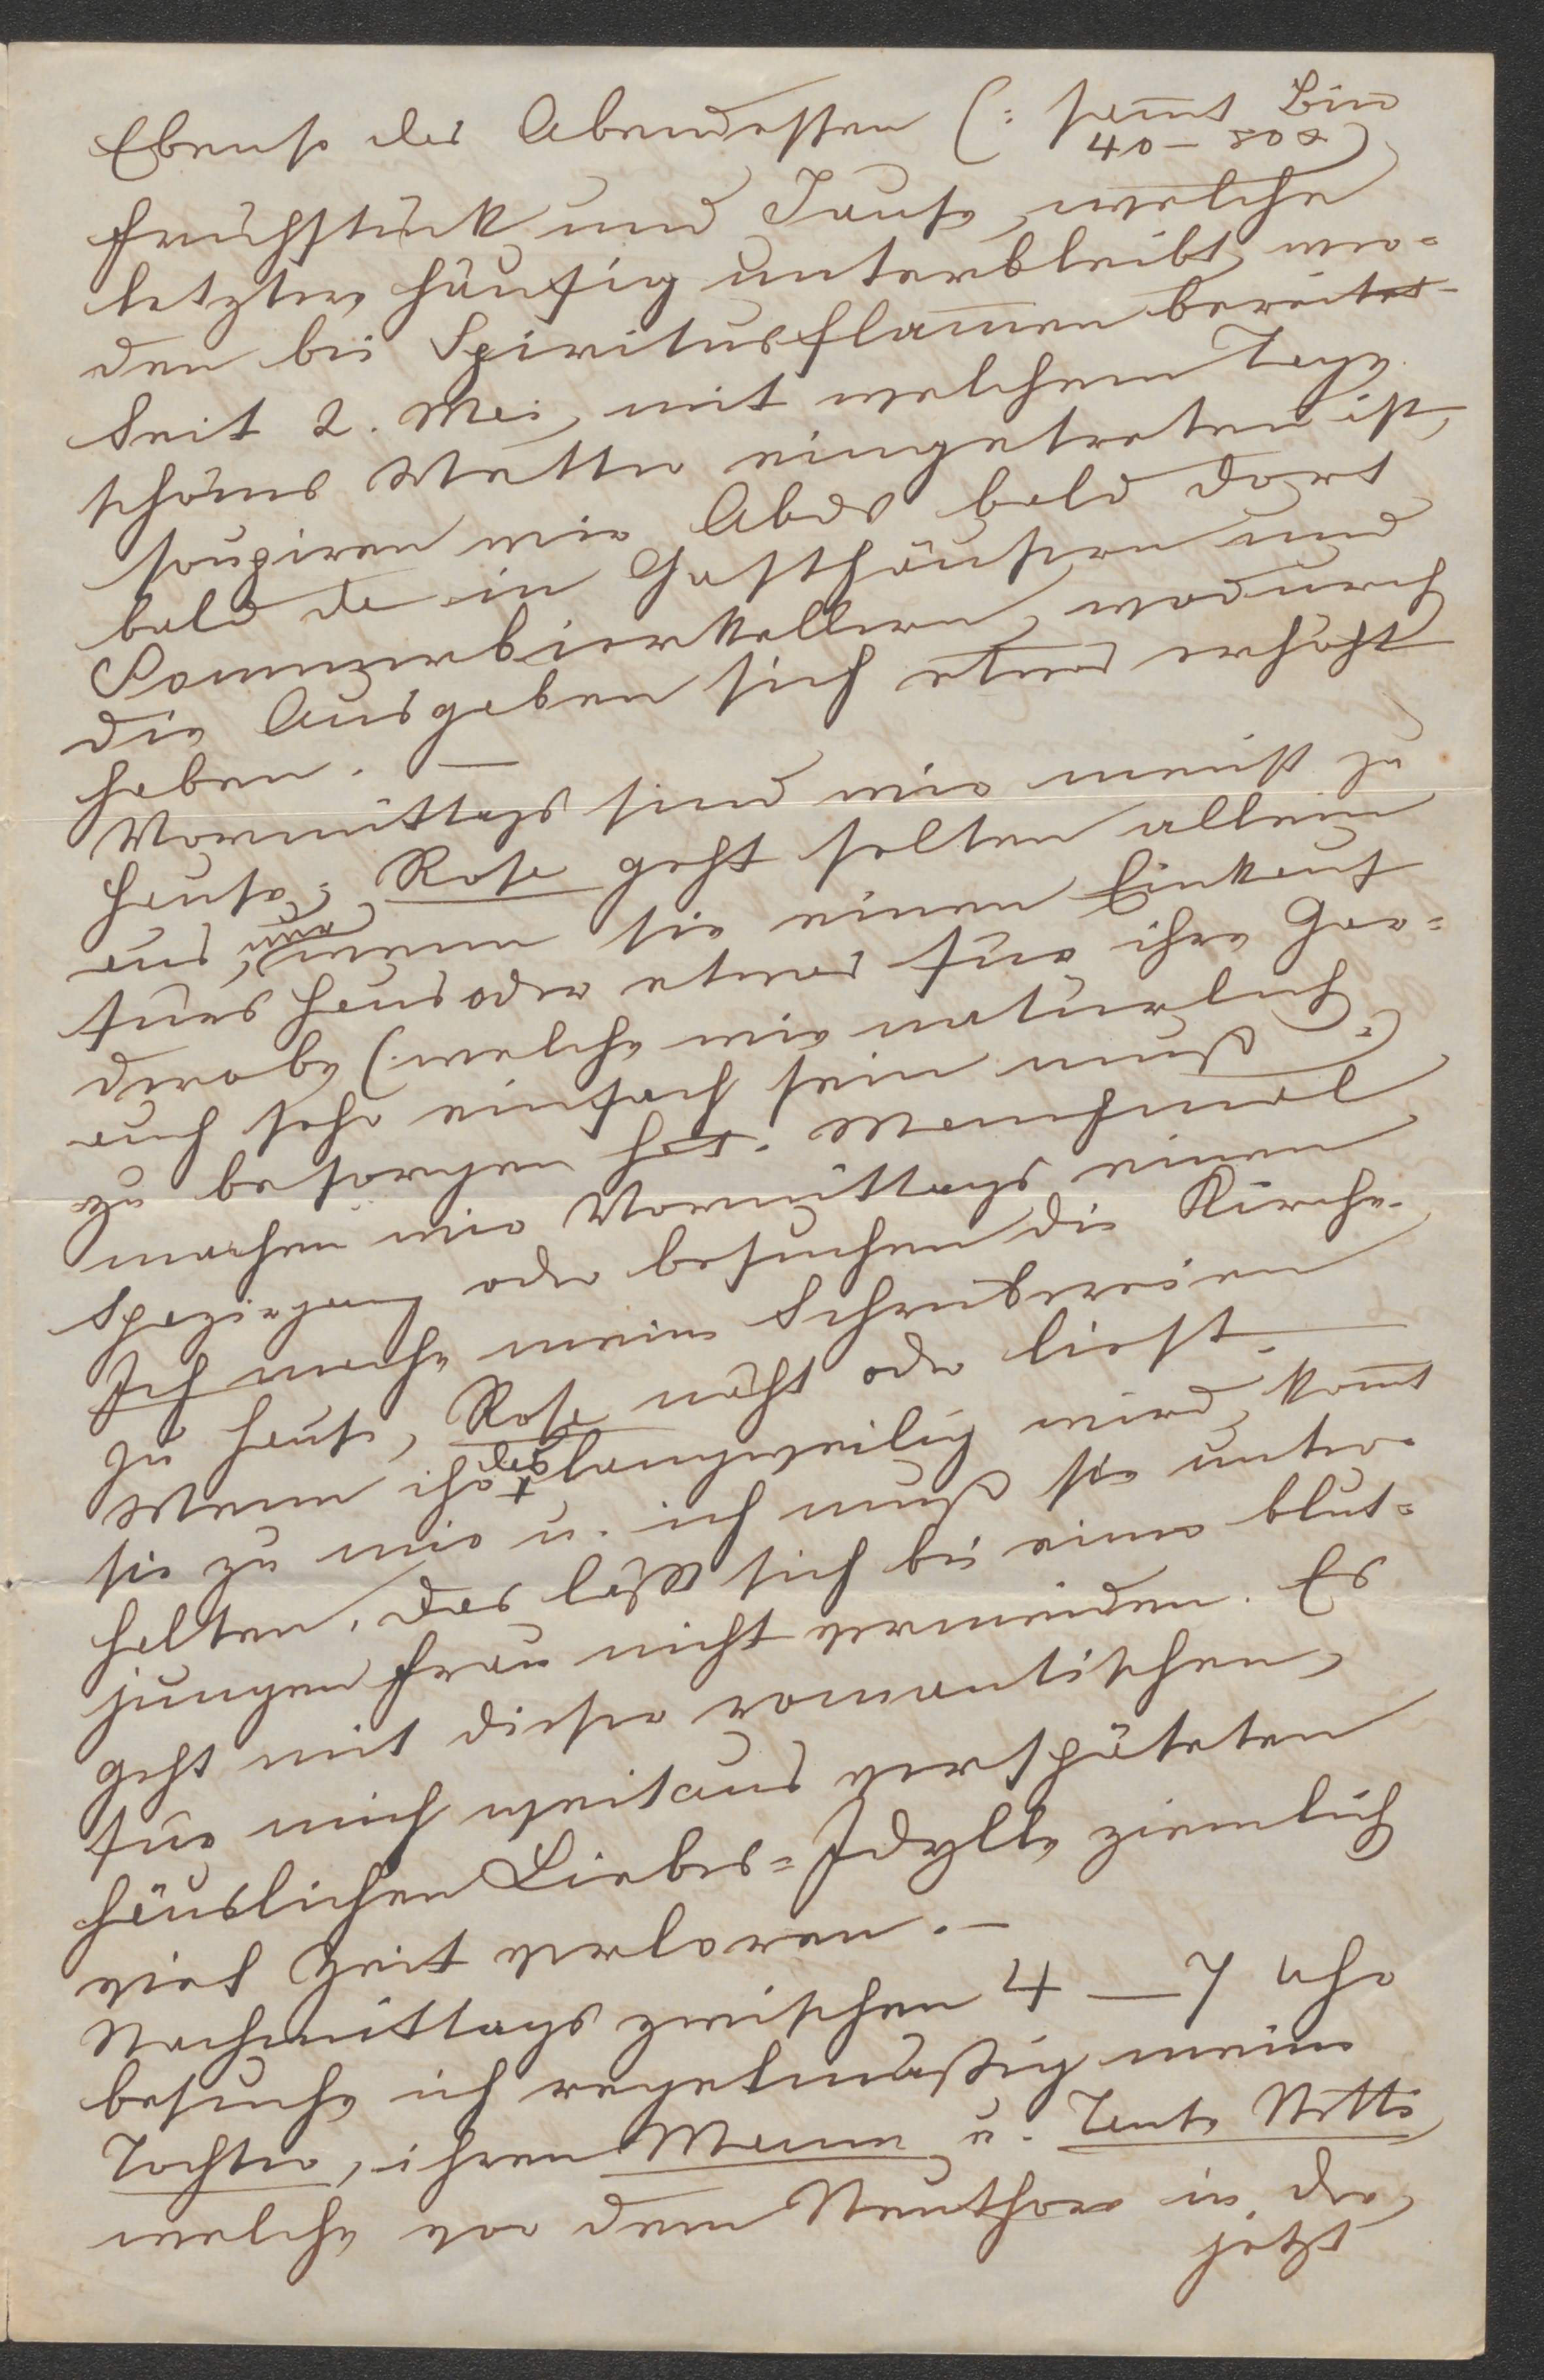 Ebenso das Abendessen (: sam̅t Bier
40 –
Frühstück und Jause, welche
letztere häufig unterbleibt, wer=
den bei Spiritusflam̅en bereitet –
Seit 2. Mai, mit welchem Tage
schönes Wetter eingetreten ist,
soupiren wir Abds bald dort
bald da in Gasthäusern und
Sommerbierkellern, wodurch
die Ausgaben sich etwas erhöht
haben. —
Vormittags sind wir meist zu
Hause, Rosa geht selten allein
aus, nur wenn sie einen Einkauf
fürs Haus oder etwas für ihre Gar=
derobe (: welche wie natürlich
auch sehr einfach sein muß :)
zu besorgen hat. Manchmal
machen wir Vormittags einen
Spaziergang oder besuchen die Kirche.
Ich mache meine Schreibereien
zu Hause, Rosa näht oder liest. —
Wenn ihr das langweilig wird, kom̅t
sie zu mir u. ich muß sie unter=
halten, das läßt sich bei einer blut=
jungen Frau nicht vermeiden. Es
geht mit dieser romantischen,
für mich weitaus verspäteten
häuslichen Liebes=Idylle ziemlich
viel Zeit verloren. —
Nachmittags zwischen 4 — 7 Uhr
besuche ich regelmäßig meine
Tochter, ihren Mann u. Tante Netti
welche vor dem Neuthor in der
jetzt